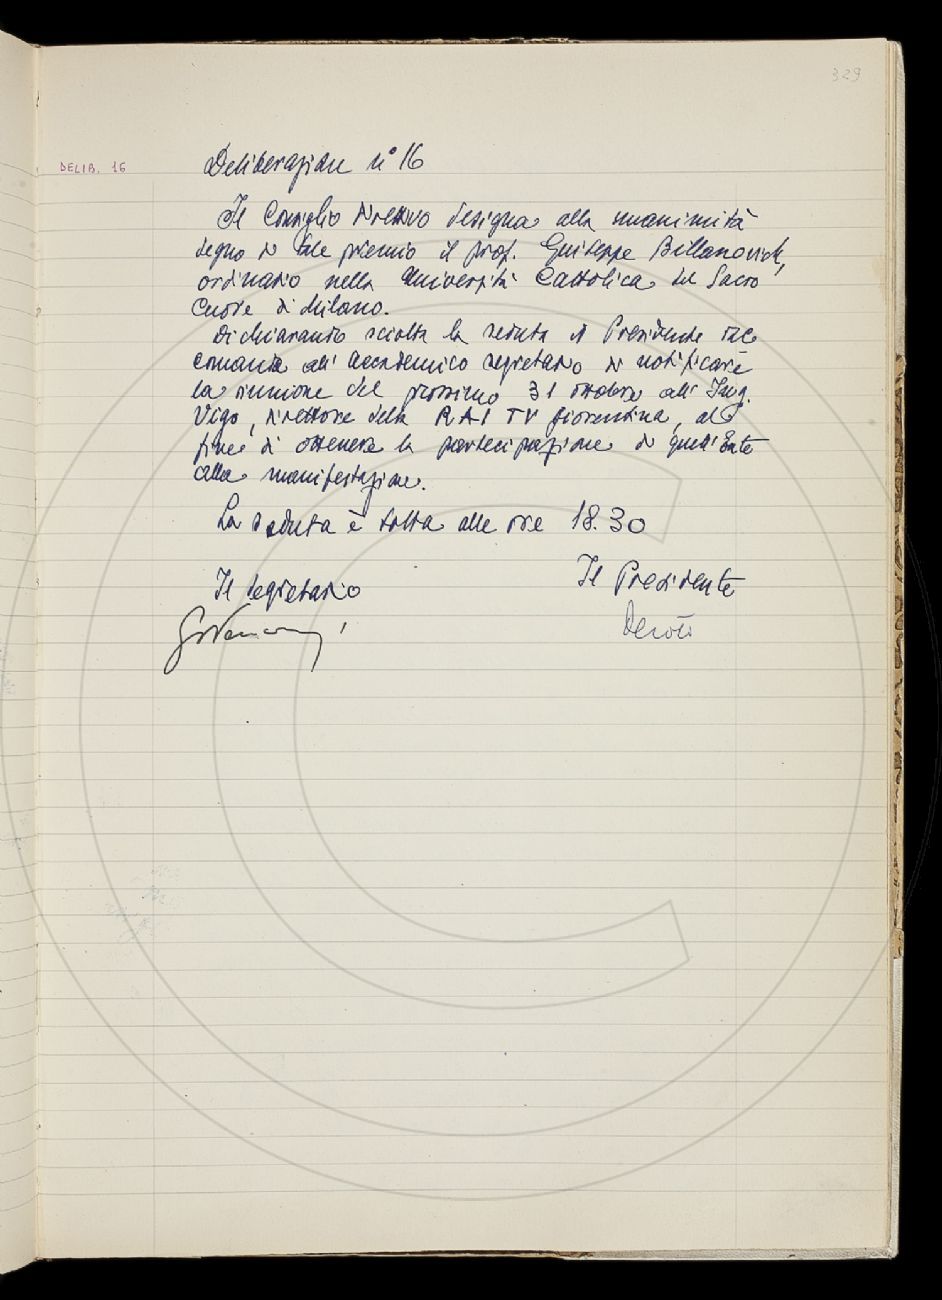 329
DELIB. 16
Deliberazione n° 16
Il Consiglio Direttivo designa alla unanimità
degno di tale premio il prof. Giuseppe Billanovich,
ordinario nella Università Cattolica del Sacro
Cuore di Milano.
Dichiarando sciolta la seduta il Presidente rac
comanda all' Accademico segretario di notificare
la riunione del prossimo 31 ottobre all' Ing.
Vigo, direttore della RAI TV fiorentina, al
fine di ottenere la partecipazione di quell'Ente
alla manifestazione.
La seduta è tolta alle ore 18.30
Il segretario
Il Presidente
Devoto